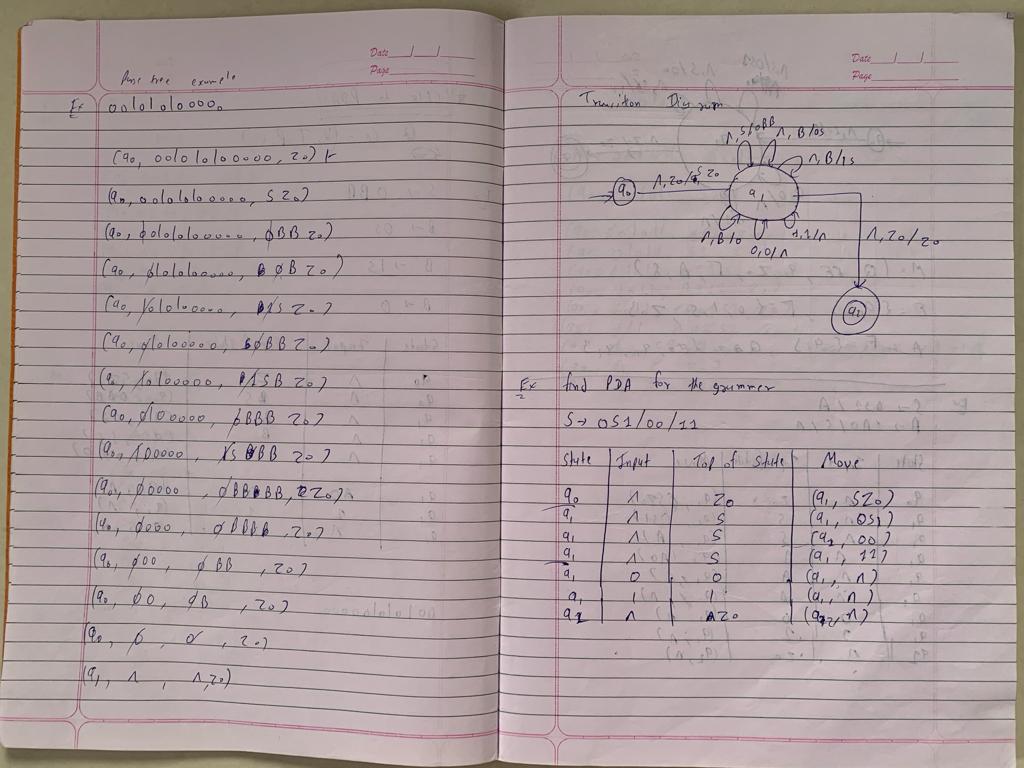 Date __/__/__
Page
Parse tree example
Ex 00101010000
(q0, 00101010000, z0) ⊢
(q0, 00101010000, S z0)
(q0, 00101010000, 0BB z0)
(q0, 0101010000, 0B z0)
(q0, 101010000, 1S z0)
(q0, 01010000, 0BB z0)
(q0, 1010000, 1SB z0)
(q0, 0100000, 0BBB z0)
(q0, 100000, 1S BBB z0)
(q0, 00000, z0)
(q0, 0000, 0BBB, z0)
(q0, 000, 0BB, z0)
(q0, 00, 0B, z0)
(q0, 0, 0, z0)
(q1, Λ, Λ, z0)
Date __/__/__
Page
Transition Diagram
Λ, S/0BB
Λ, B/0S
Λ, B/1S
q0
Λ, z0/S z0
q1
Λ, B/0
0,0/Λ
1,1/Λ
Λ, z0/z0
q2
Ex 2 find PDA for the grammer
S → 0S1/00/11
State Input Top of State Move
q0 Λ z0 (q1, Sz0)
q1 Λ S (q1, 0S1)
q1 Λ S (q1, 00)
q1 Λ S (q1, 11)
q1 0 0 (q1, Λ)
q1 1 1 (q1, Λ)
q1 Λ z0 (q2, Λ)